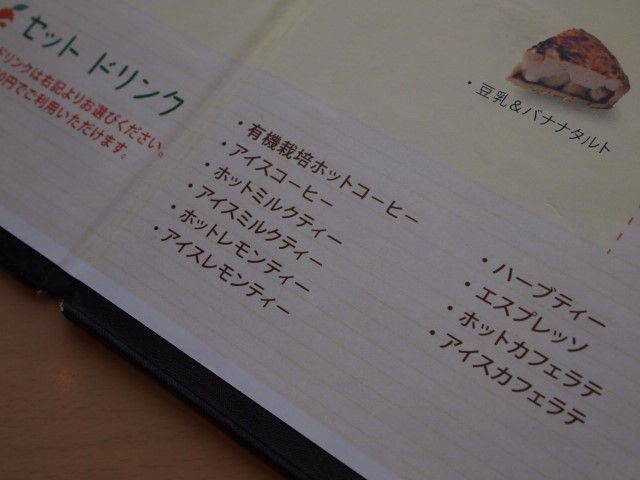 セット ドリンク
ドリンクは右記よりお選びください。
0円でご利用いただけます。
・豆乳&バナナタルト
・有機栽培ホットコーヒー
・アイスコーヒー
・ホットミルクティー
・アイスミルクティー
・ホットレモンティー
・アイスレモンティー
・ハーブティー
・エスプレッソ
・ホットカフェラテ
・アイスカフェラテ